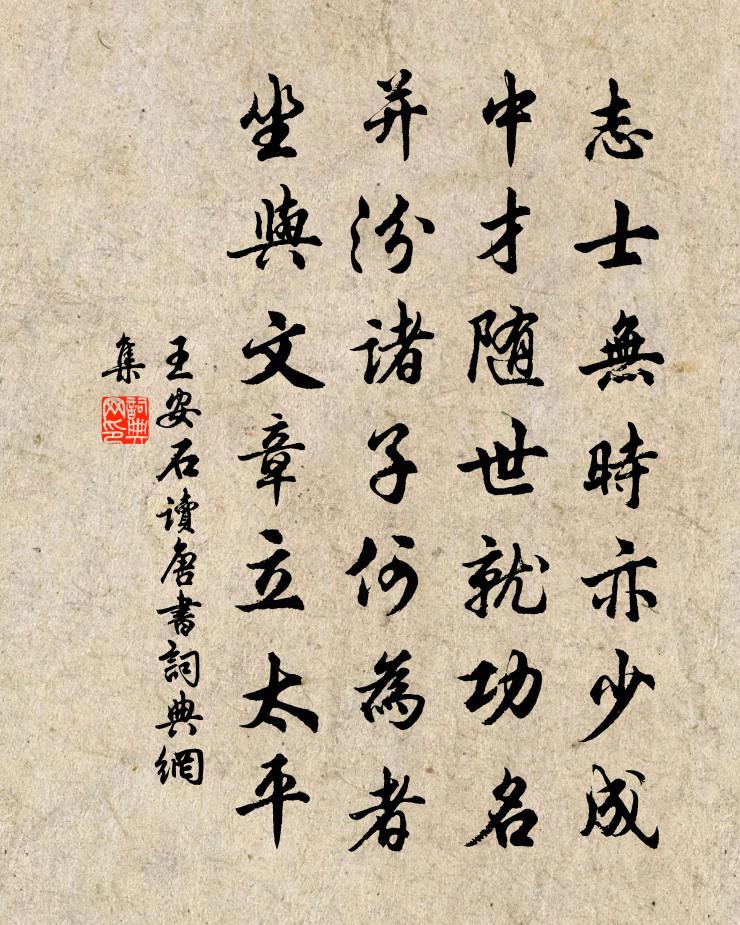 志士無時亦少成
中才随世就功名
并汾諸子何為者
坐與文章立太平
王安石讀唐書詞典網
集
詞典
网印